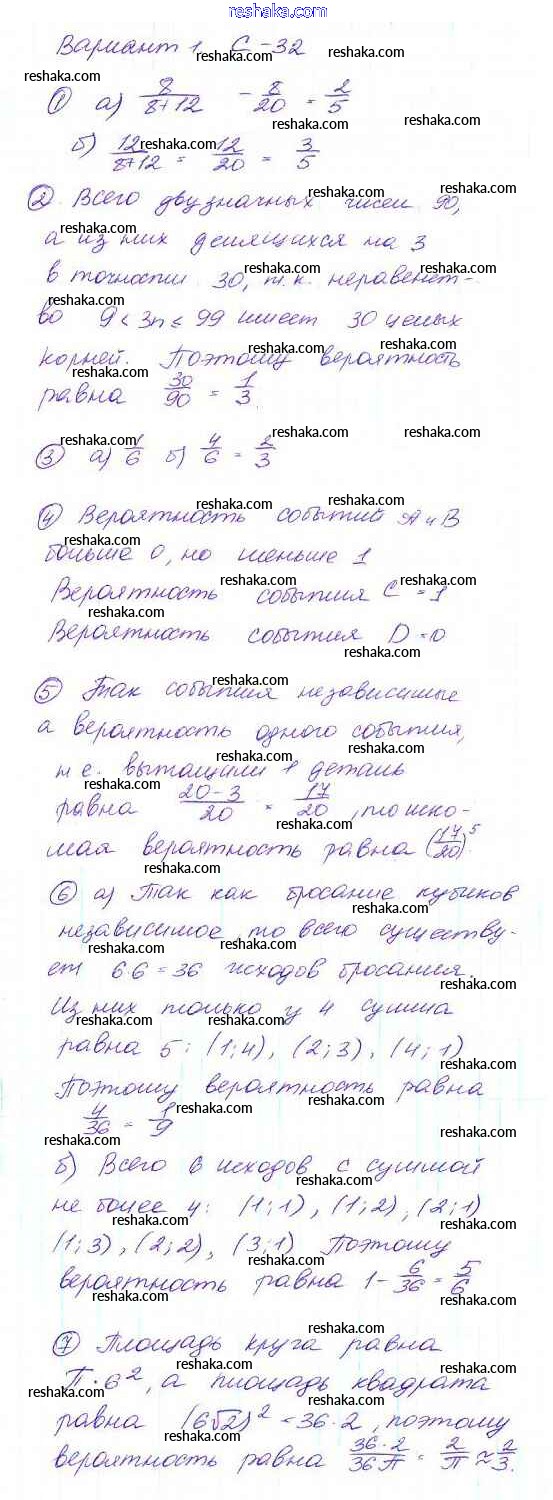 www.reshaka.com
Вариант 1 С-32
① а) 8/(8+12) - 8/20 = 2/5
б) 12/(8+12) = 12/20 = 3/5
② Всего двузначных чисел 90,
а из них делящихся на 3
в точности 30, т.к. неравенст-
во 9 < 3n ≤ 99 имеет 30 целых
корней. Поэтому вероятность
равна 30/90 = 1/3.
③ а) 1/6 б) 4/6 = 2/3
④ Вероятность событий А и В
больше 0, но меньше 1
Вероятность события С = 1
Вероятность события D = 0
⑤ Так события независимые
а вероятность одного события,
т.е. вытащили 1 деталь
равна (20-3)/20 = 17/20, то иско-
мая вероятность равна (17/20)⁵
⑥ а) Так как бросание кубиков
независимое, то всего существу-
ет 6·6 = 36 исходов бросания.
Из них только у 4 сумма
равна 5: (1;4), (2;3), (4;1)
Поэтому вероятность равна
4/36 = 1/9
б) Всего 6 исходов с суммой
не более 4: (1;1), (1;2), (2;1)
(1;3), (2;2), (3;1) Поэтому
вероятность равна 1 - 6/36 = 5/6
⑦ Площадь круга равна
П·6², а площадь квадрата
равна (6√2)² = 36·2, поэтому
вероятность равна 36·2/36П = 2/П ≈ 2/3.